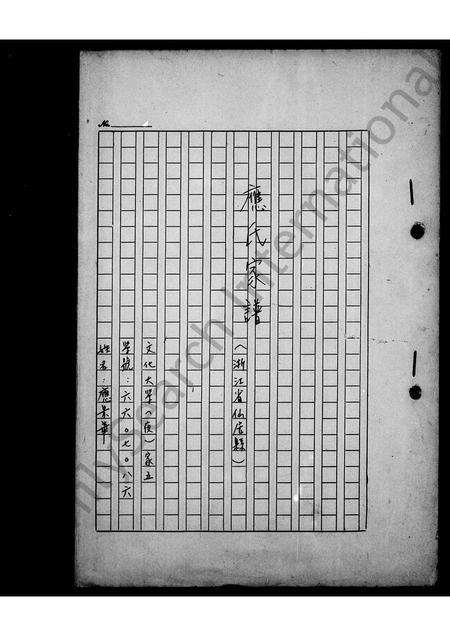 應氏家譜
（浙江省仙居縣）
文化大學（夜）家五
學號：六六〇七〇八六
姓名：應美華
No.
FamilySearch International